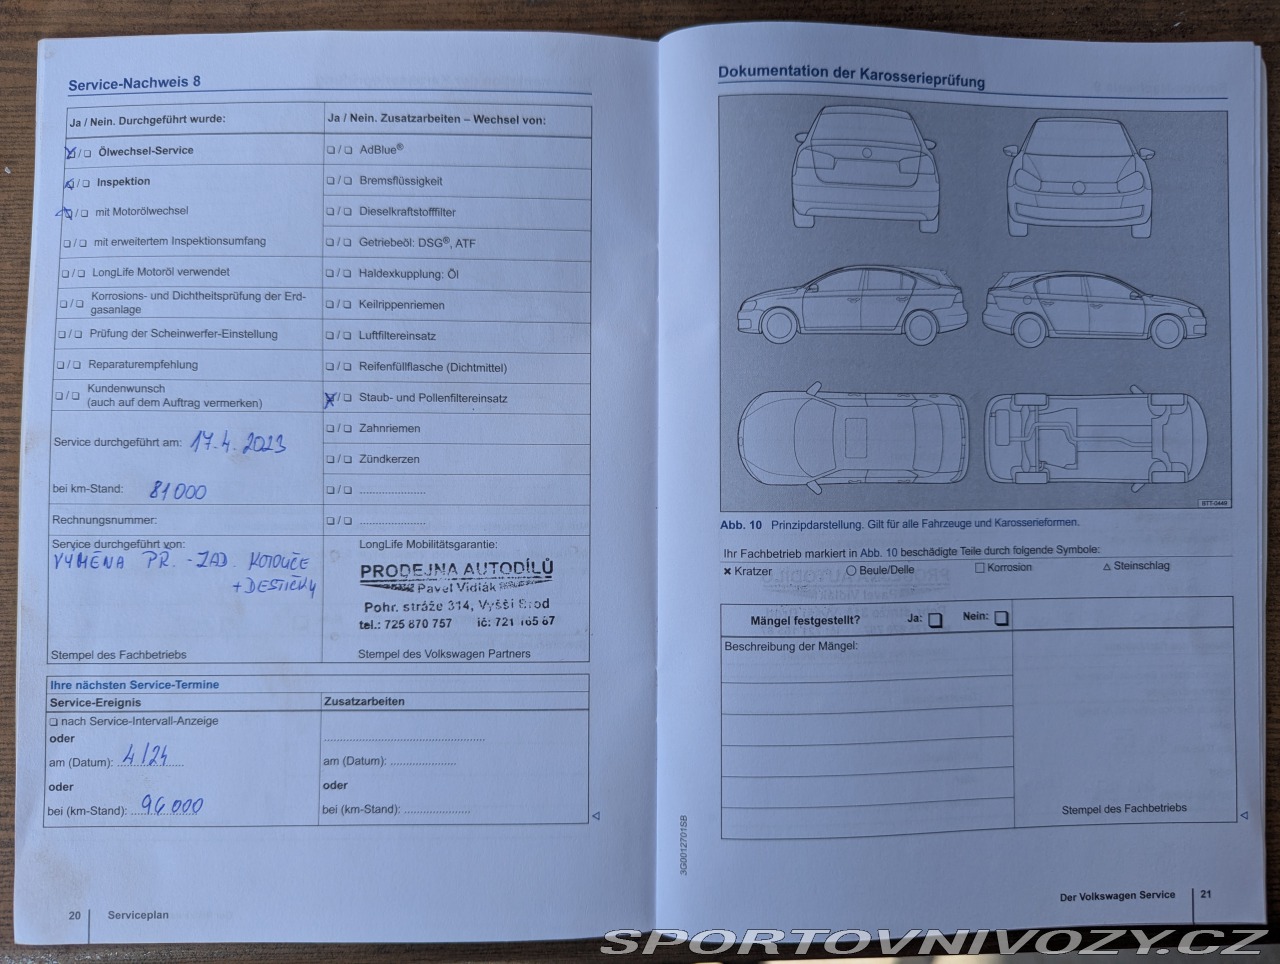 Service-Nachweis 8
Ja / Nein. Durchgeführt wurde:
☒/❏ Ölwechsel-Service
☒/❏ Inspektion
☒/❏ mit Motorölwechsel
❏/❏ mit erweitertem Inspektionsumfang
❏/❏ LongLife Motoröl verwendet
❏/❏ Korrosions- und Dichtheitsprüfung der Erd-
gasanlage
❏/❏ Prüfung der Scheinwerfer-Einstellung
❏/❏ Reparaturempfehlung
❏/❏ Kundenwunsch
(auch auf dem Auftrag vermerken)
Service durchgeführt am: 17.4.2023
bei km-Stand: 81000
Rechnungsnummer:
Service durchgeführt von:
VÝMĚNA PŘ.-ZAD. KOTOUČE
+DESTIČKY
Stempel des Fachbetriebs
Ja / Nein. Zusatzarbeiten – Wechsel von:
❏/❏ AdBlue®
❏/❏ Bremsflüssigkeit
❏/❏ Dieselkraftstofffilter
❏/❏ Getriebeöl: DSG®, ATF
❏/❏ Haldexkupplung: Öl
❏/❏ Keilrippenriemen
❏/❏ Luftfiltereinsatz
❏/❏ Reifenfüllflasche (Dichtmittel)
☒/❏ Staub- und Pollenfiltereinsatz
❏/❏ Zahnriemen
❏/❏ Zündkerzen
❏/❏ ......................
❏/❏ ......................
LongLife Mobilitätsgarantie:
PRODEJNA AUTODÍLŮ
Pavel Vidlák
Pohr. stráže 314, Vyšší Brod
tel.: 725 870 757 ič: 721 165 67
Stempel des Volkswagen Partners
Ihre nächsten Service-Termine
Service-Ereignis
❏ nach Service-Intervall-Anzeige
oder
am (Datum): 4/24
oder
bei (km-Stand): 96000
Zusatzarbeiten
am (Datum): ......................
oder
bei (km-Stand): ......................
20 Serviceplan
Dokumentation der Karosserieprüfung
BTT-0449
Abb. 10 Prinzipdarstellung. Gilt für alle Fahrzeuge und Karosserieformen.
Ihr Fachbetrieb markiert in Abb. 10 beschädigte Teile durch folgende Symbole:
✖ Kratzer ◯ Beule/Delle □ Korrosion △ Steinschlag
Mängel festgestellt? Ja: ❏ Nein: ❏
Beschreibung der Mängel:
Stempel des Fachbetriebs
3G0012701SB
Der Volkswagen Service 21
SPORTOVNIVOZY.CZ